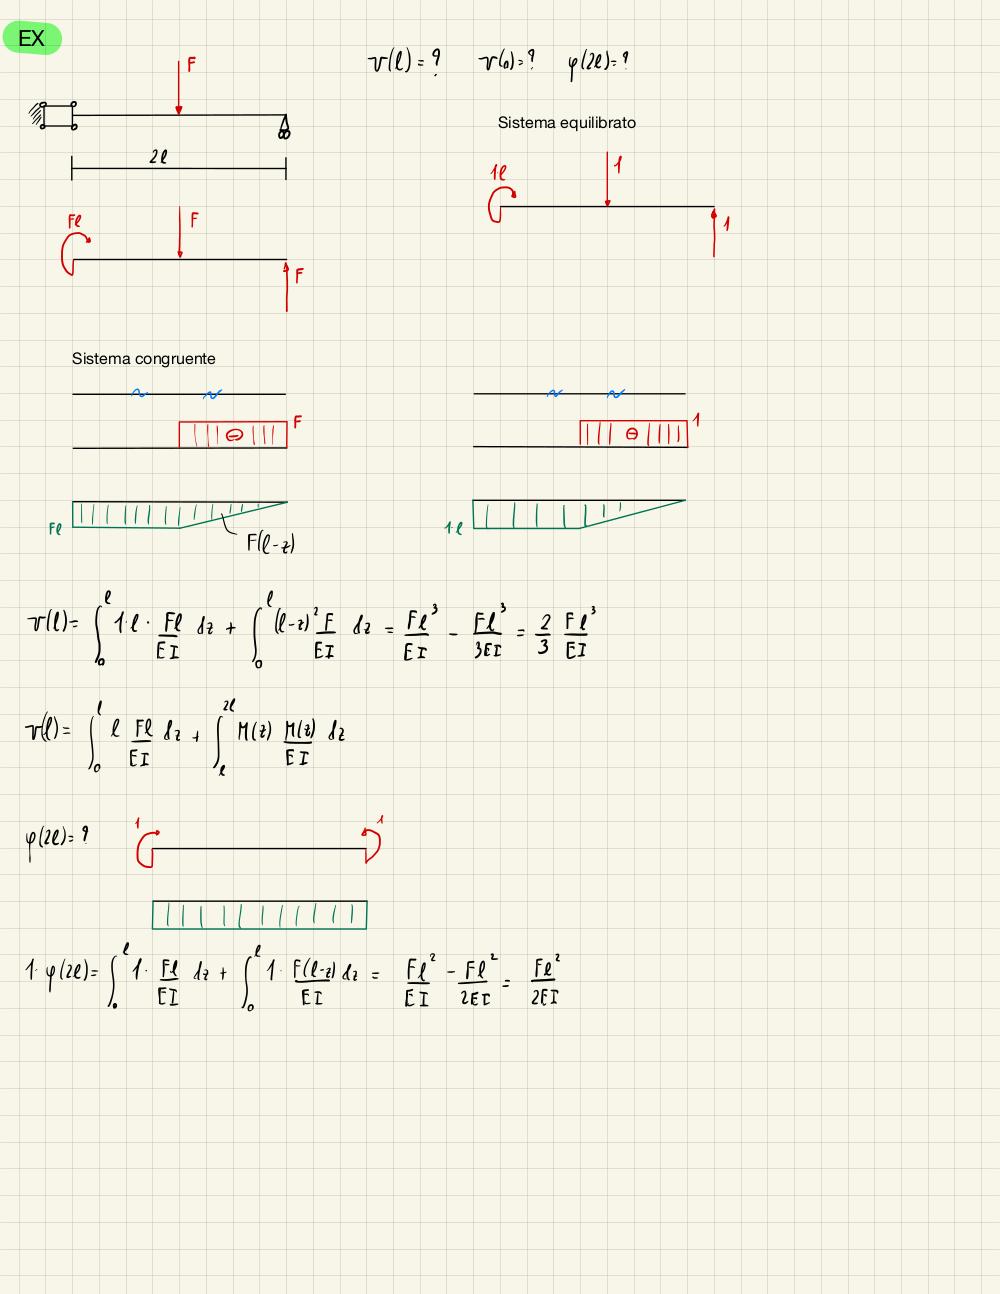 EX
v(l) = ? v(0) = ? φ(2l) = ?
F
2l
Sistema equilibrato
1l
1
1
Fl
F
F
Sistema congruente
F
1
Fl
F(l-z)
1·l
v(l) = ∫₀ˡ 1·l · Fl/EI dz + ∫₀ˡ (l-z)² F/EI dz = Fl³/EI - Fl³/3EI = 2/3 Fl³/EI
v(l) = ∫₀ˡ l Fl/EI dz + ∫ₗ²ˡ M(z) M(z)/EI dz
φ(2l) = ?
1
1
1· φ(2l) = ∫₀ˡ 1· Fl/EI dz + ∫₀ˡ 1· F(l-z)/EI dz = Fl²/EI - Fl²/2EI = Fl²/2EI